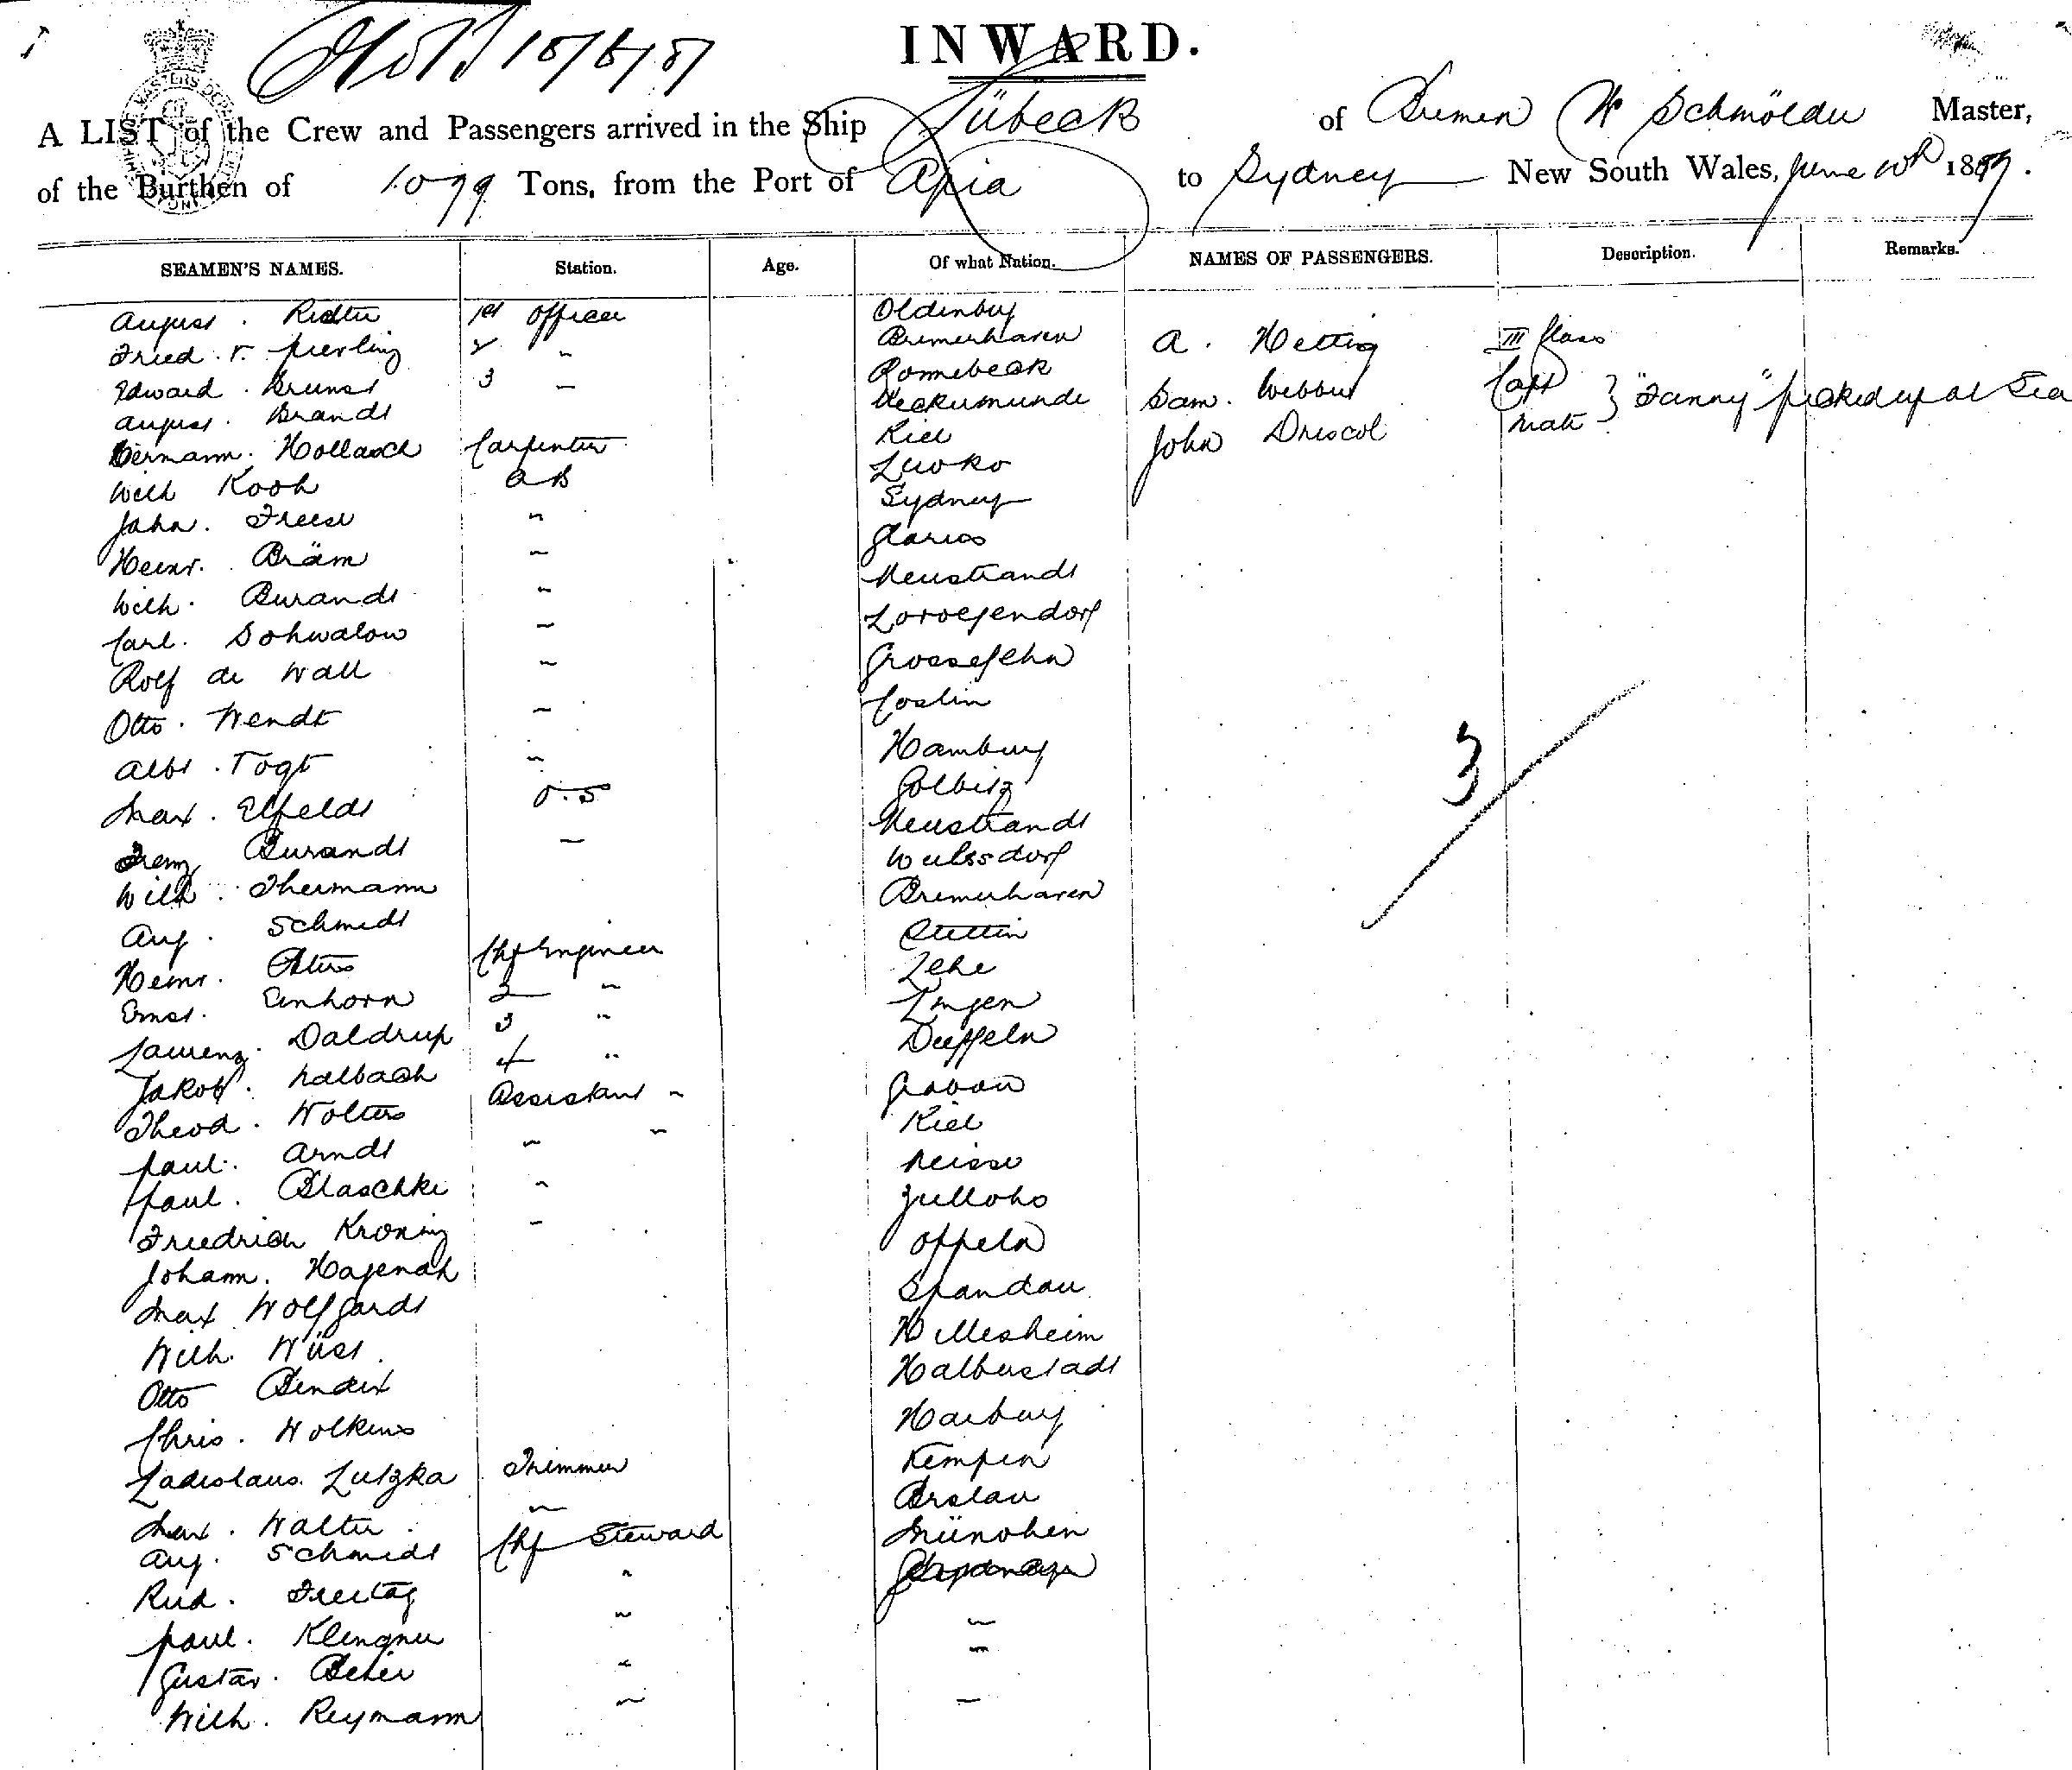 INWARD.
A LIST of the Crew and Passengers arrived in the Ship Lübeck of Bremen W Schmölder Master,
of the Burthen of 1079 Tons, from the Port of Apia to Sydney New South Wales, June 10th 1889.
SEAMEN'S NAMES. Station. Age. Of what Nation. NAMES OF PASSENGERS. Description. Remarks.
August. Richter 1st Officer Oldenburg
Fried. v. Pierling 2 " Bremerhaven A. Hettig III Class
Edward. Bruns 3 " Ronnebeck
August. Brandt Ueckermunde Sam. Webber Capt } "Fanny" picked up at Sea
Hermann. Hollasch Carpenter Kiel John Driscol Mate
Wilh Kooh AB
John. Freese " Sydney
Heinr. Bräm " Glarus
Wilh. Burandt " Neustrandt
Carl. Sohwalow "
Rolf de Wall " Grossefehn
Otto. Wendt " Coslin
Albt. Vogt " Hamburg
Max. Elfeldt O.S. Golbitz
Burandt " Neustrandt
Wilh. Thermann Wulssdorf
Aug. Schmidt Bremerhaven
Heinr. Peters Chf Engineer Stettin
Ernst. Einhorn 2 " Lehe
Laurenz. Daldrup 3 " Lingen
Jakob. Kalbach 4 "
Theod. Wolters Assistant "
Paul. Arndt " " Kiel
Paul. Blaschke " Neisse
Friedrich Kroning "
Johann. Hagenah Oppeln
Max Wolfgardt Spandau
Wilh. Wüst Hillesheim
Otto Bendix Halberstadt
Chris. Wolkins Harburg
Ladislaus. Lutzka Trimmer Kempen
Max. Walter " Breslau
Aug. Schmidt Chf Steward Münohen
Rud. Freitag "
Paul. Klingner " "
Gustav. Beier " "
Wilh. Reymann " "
3